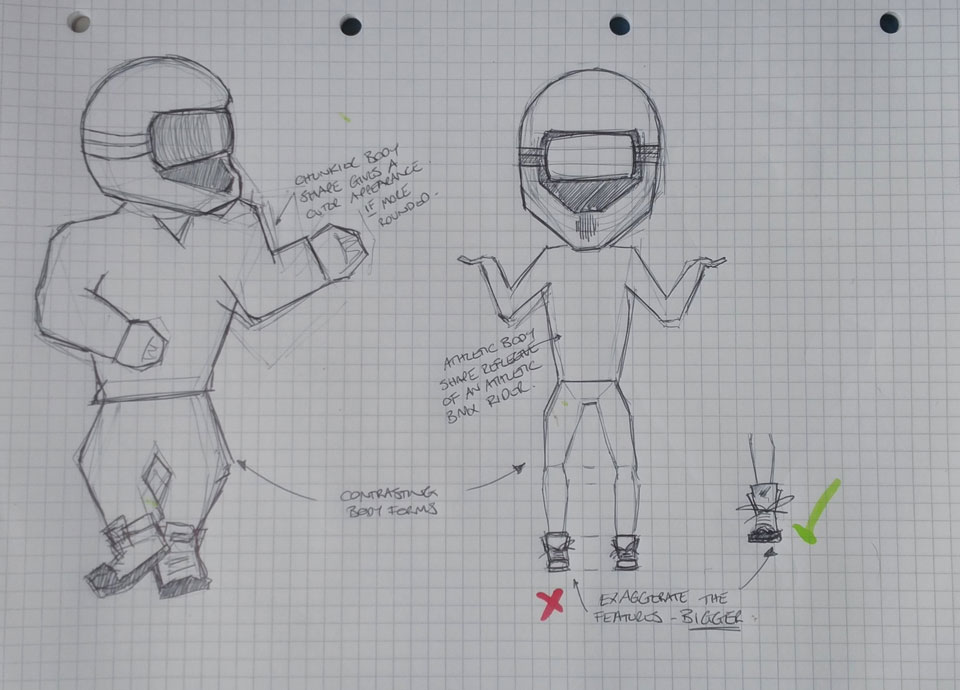 CHUNKIER BODY
SHAPE GIVES A
CUTER APPEARANCE
IF MORE
ROUNDED.
ATHLETIC BODY
SHAPE REFLECTIVE
OF AN ATHLETIC
BMX RIDER.
CONTRASTING
BODY FORMS
EXAGGERATE THE
FEATURES - BIGGER.